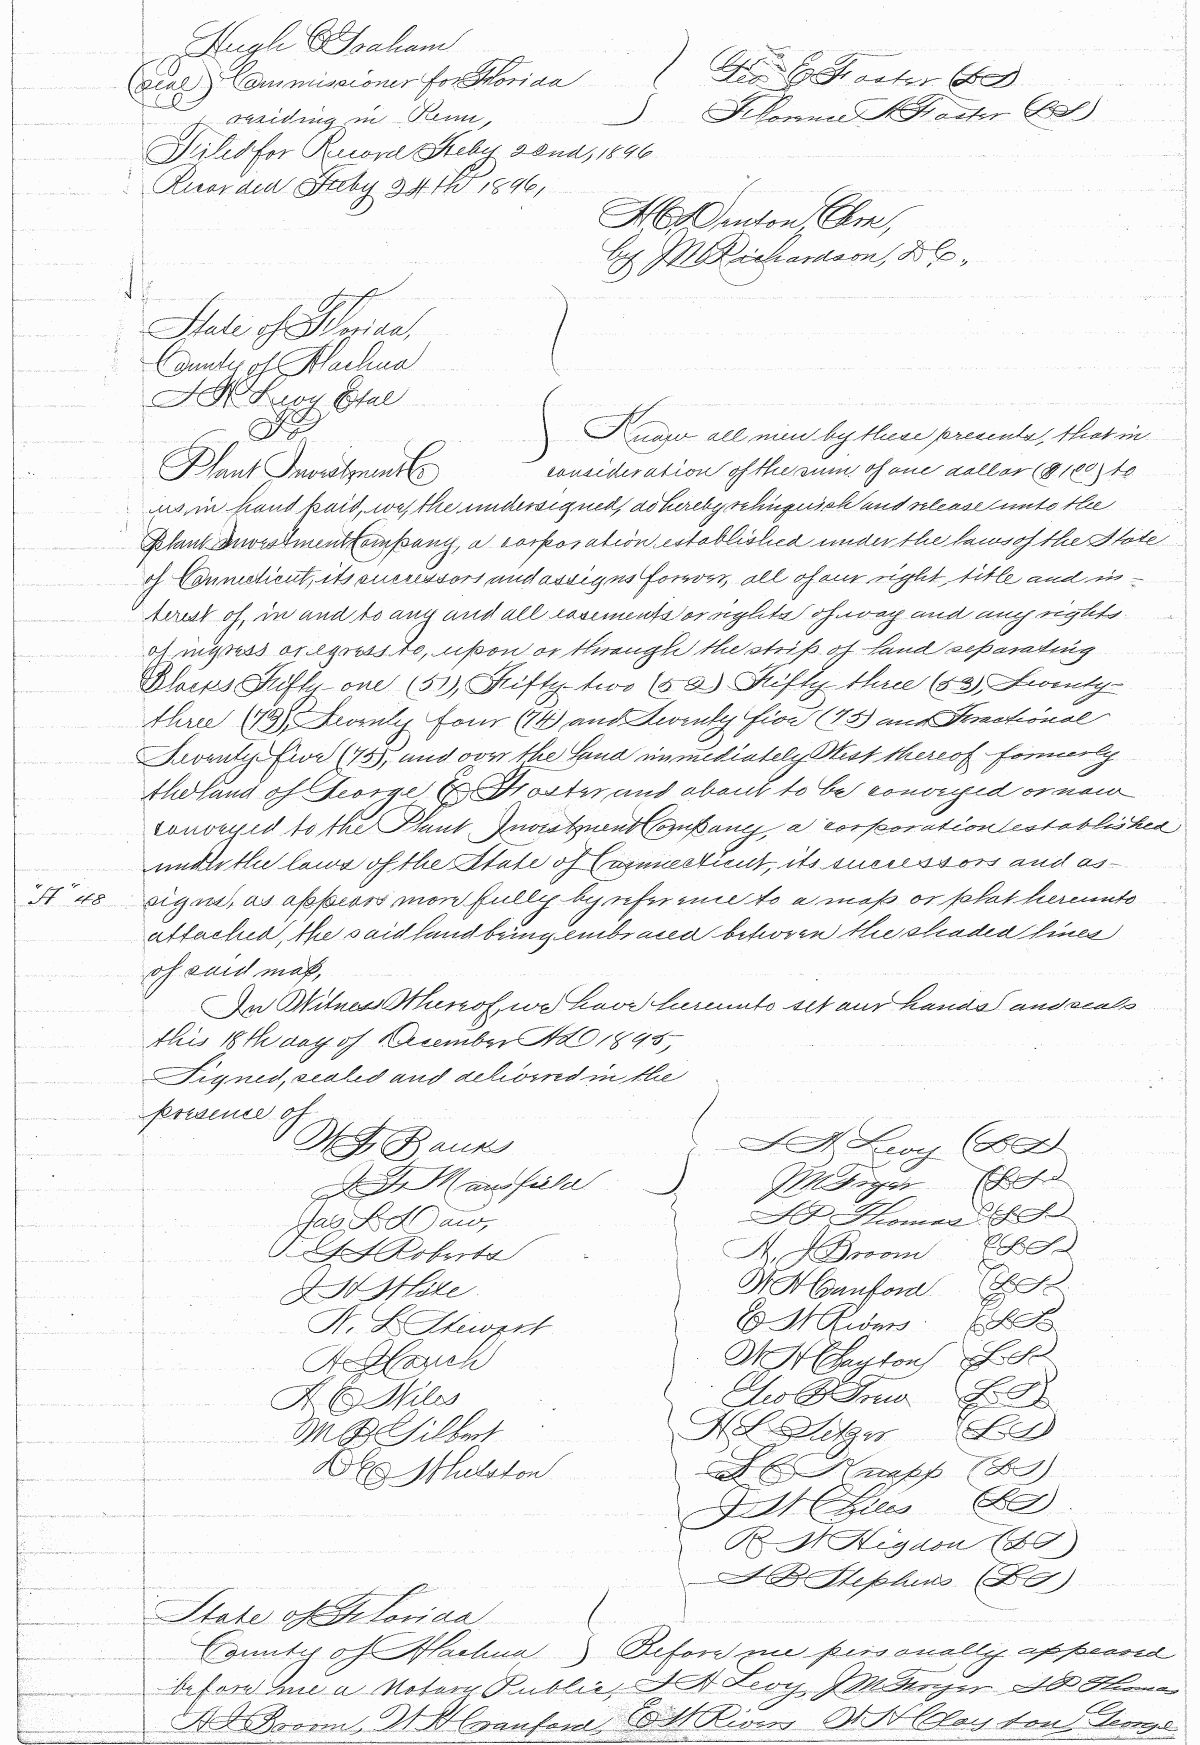 Hugh C Graham
(seal) Commissioner for Florida
residing in Penn,
Geo E Foster (LS)
Florence A Foster (LS)
Filed for Record Feby 22nd, 1896
Recorded Feby 24th 1896,
H C Denton, Clerk,
by J M Richardson, D C,
State of Florida,
County of Alachua
S A Levy Etal
To
Plant Investment Co
Know all men by these presents, that in
consideration of the sum of one dollar ($1.00) to
us in hand paid, we, the undersigned, do hereby relinquish and release unto the
Plant Investment Company, a corporation established under the laws of the State
of Connecticut, its successors and assigns forever, all of our right, title and in-
terest of, in and to any and all easements or rights of way and any rights
of ingress or egress to, upon or through the strip of land separating
Blocks Fifty one (51), Fifty two (52) Fifty three (53), Seventy
three (73), Seventy four (74) and Seventy five (75) and Fractional
Seventy five (75), and over the land immediately West thereof formerly
the land of George E Foster and about to be conveyed or now
conveyed to the Plant Investment Company, a corporation established
under the laws of the State of Connecticut, its successors and as-
"A" 48
signs, as appears more fully by reference to a map or plat hereunto
attached, the said land being embraced between the shaded lines
of said map,
In Witness Whereof, we have hereunto set our hands and seals
this 18th day of December AD 1895,
Signed, sealed and delivered in the
presence of
W F Banks
J F Mansfield
Jas L Daw,
Roberts
J W Hite
N. L Stewart
A Hauch
A C Wiles
M B Gilbert
D C Whelston
S A Levy (LS)
J M Fryer (LS)
S P Thomas (LS)
A. J Broom (LS)
W H Cranford (LS)
E W Rivers (LS)
W H Clayton (LS)
Geo B Trew (LS)
H L Setzer (LS)
S C Knapp (LS)
J W Chiles (LS)
R W Higdon (LS)
S B Stephens (LS)
State of Florida
County of Alachua
Before me personally appeared
before me a Notary Public, S A Levy J M Fryer S P Thomas
A J Broom, W H Cranford, E W Rivers W H Clayton, George